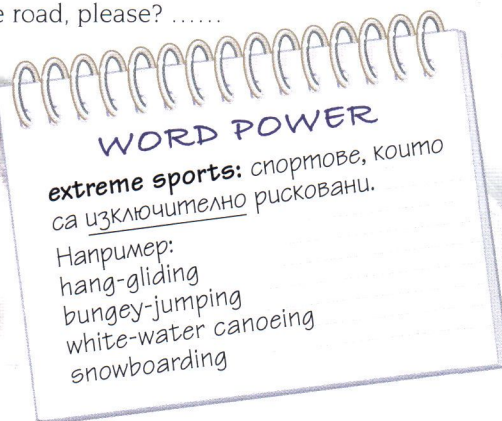 road, please? ......
WORD POWER
extreme sports: спортове, които
са изключително рисковани.
Например:
hang-gliding
bungey-jumping
white-water canoeing
snowboarding